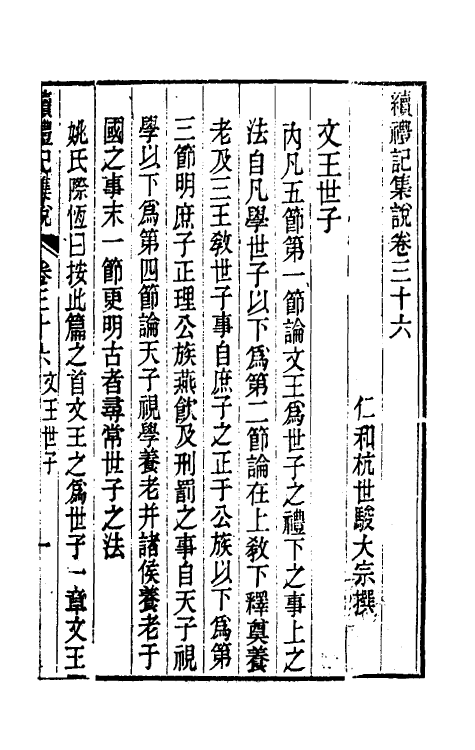 續禮記集說卷三十六
仁和杭世駿大宗撰
文王世子
內凡五節第一節論文王爲世子之禮下之事上之
法自凡學世子以下爲第二節論在上敎下釋奠養
老及三王敎世子事自庶子之正于公族以下爲第
三節明庶子正理公族燕飮及刑罰之事自天子視
學以下爲第四節論天子視學養老并諸侯養老于
國之事末一節更明古者尋常世子之法
姚氏際恆曰按此篇之首文王之爲世子一章文王
續禮記集說 卷三十六 文王世子 一